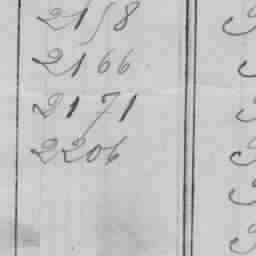 2158
2166
2171
2206